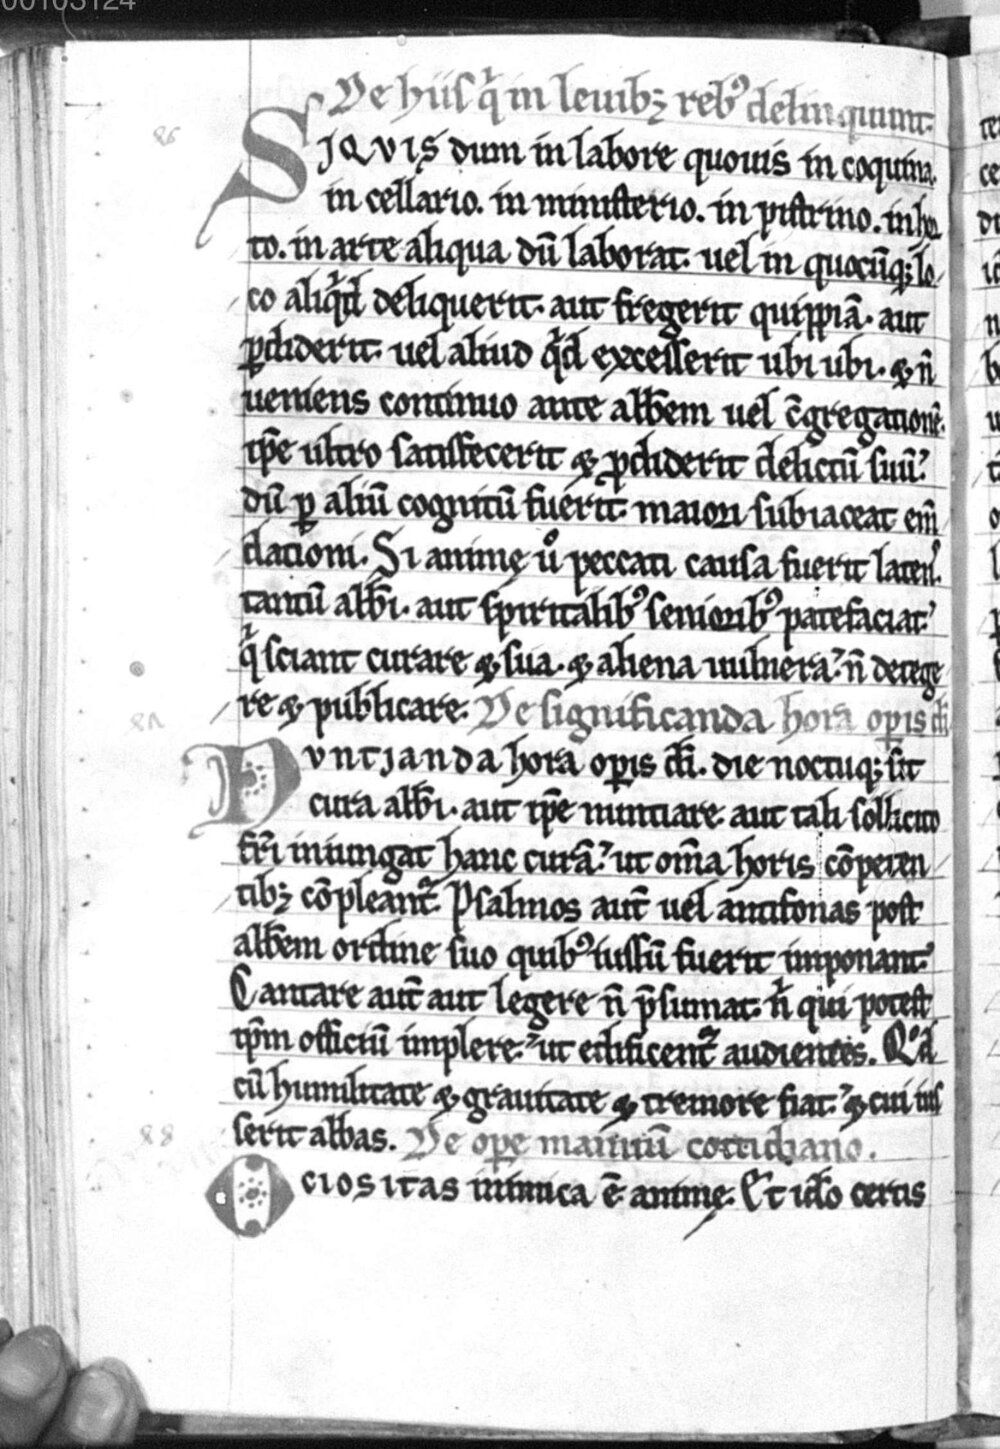 00103124
De hiis q̇ in leuibꝫ rebꝰ delinquunt.
86
SJQVIS dum in labore quouis in coquina.
in cellario. in ministerio. in pistrino. in hor
to. in arte aliqua dū laborat. uel in quocūqꝫ lo
co aliq̇d deliquerit. aut fregerit quippiā. aut
ꝑdiderit. uel aliud q̇d excesserit ubi ubi. ⁊ n̄
ueniens continuo ante abb̄em uel c̄gregationē.
ip̄e ultro satisfecerit ⁊ ꝓdiderit delictū suū.
dū ꝑ aliū cognitū fuerit. maiori subiaceat em̄
dationi. Si animę u̇o peccati causa fuerit laten̄.
tantū abb̄i. aut spiritalibꝰ senioribꝰ patefaciat᷑
q̇ sciant curare ⁊ sua. ⁊ aliena uulnera. n̄ detege
re ⁊ publicare. De significanda hora oꝑis di̅
87
NVNTJANDA hora oꝑis di̅. die noctuqꝫ sit
cura abb̄i. aut ip̄e nuntiare. aut tali sollicito
fr̄i iniungat hanc curā. ut om̄a horis cōpeten
tibꝫ cōpleant᷑. Psalmos aut̄ uel antifonas post
abb̄em ordine suo quibꝰ iussū fuerit imponant.
Cantare aut̄ aut legere n̄ p̄sumat. n̄ qui potest
ip̄m officiū implere. ut edificent᷑ audientes. Qd̄
cū humilitate ⁊ grauitate ⁊ tremore fiat. ⁊ cui ius
serit abbas. De oꝑe manuū cottidiano.
88
OCIOSITAS inimica ē animę. Et id̄o certis